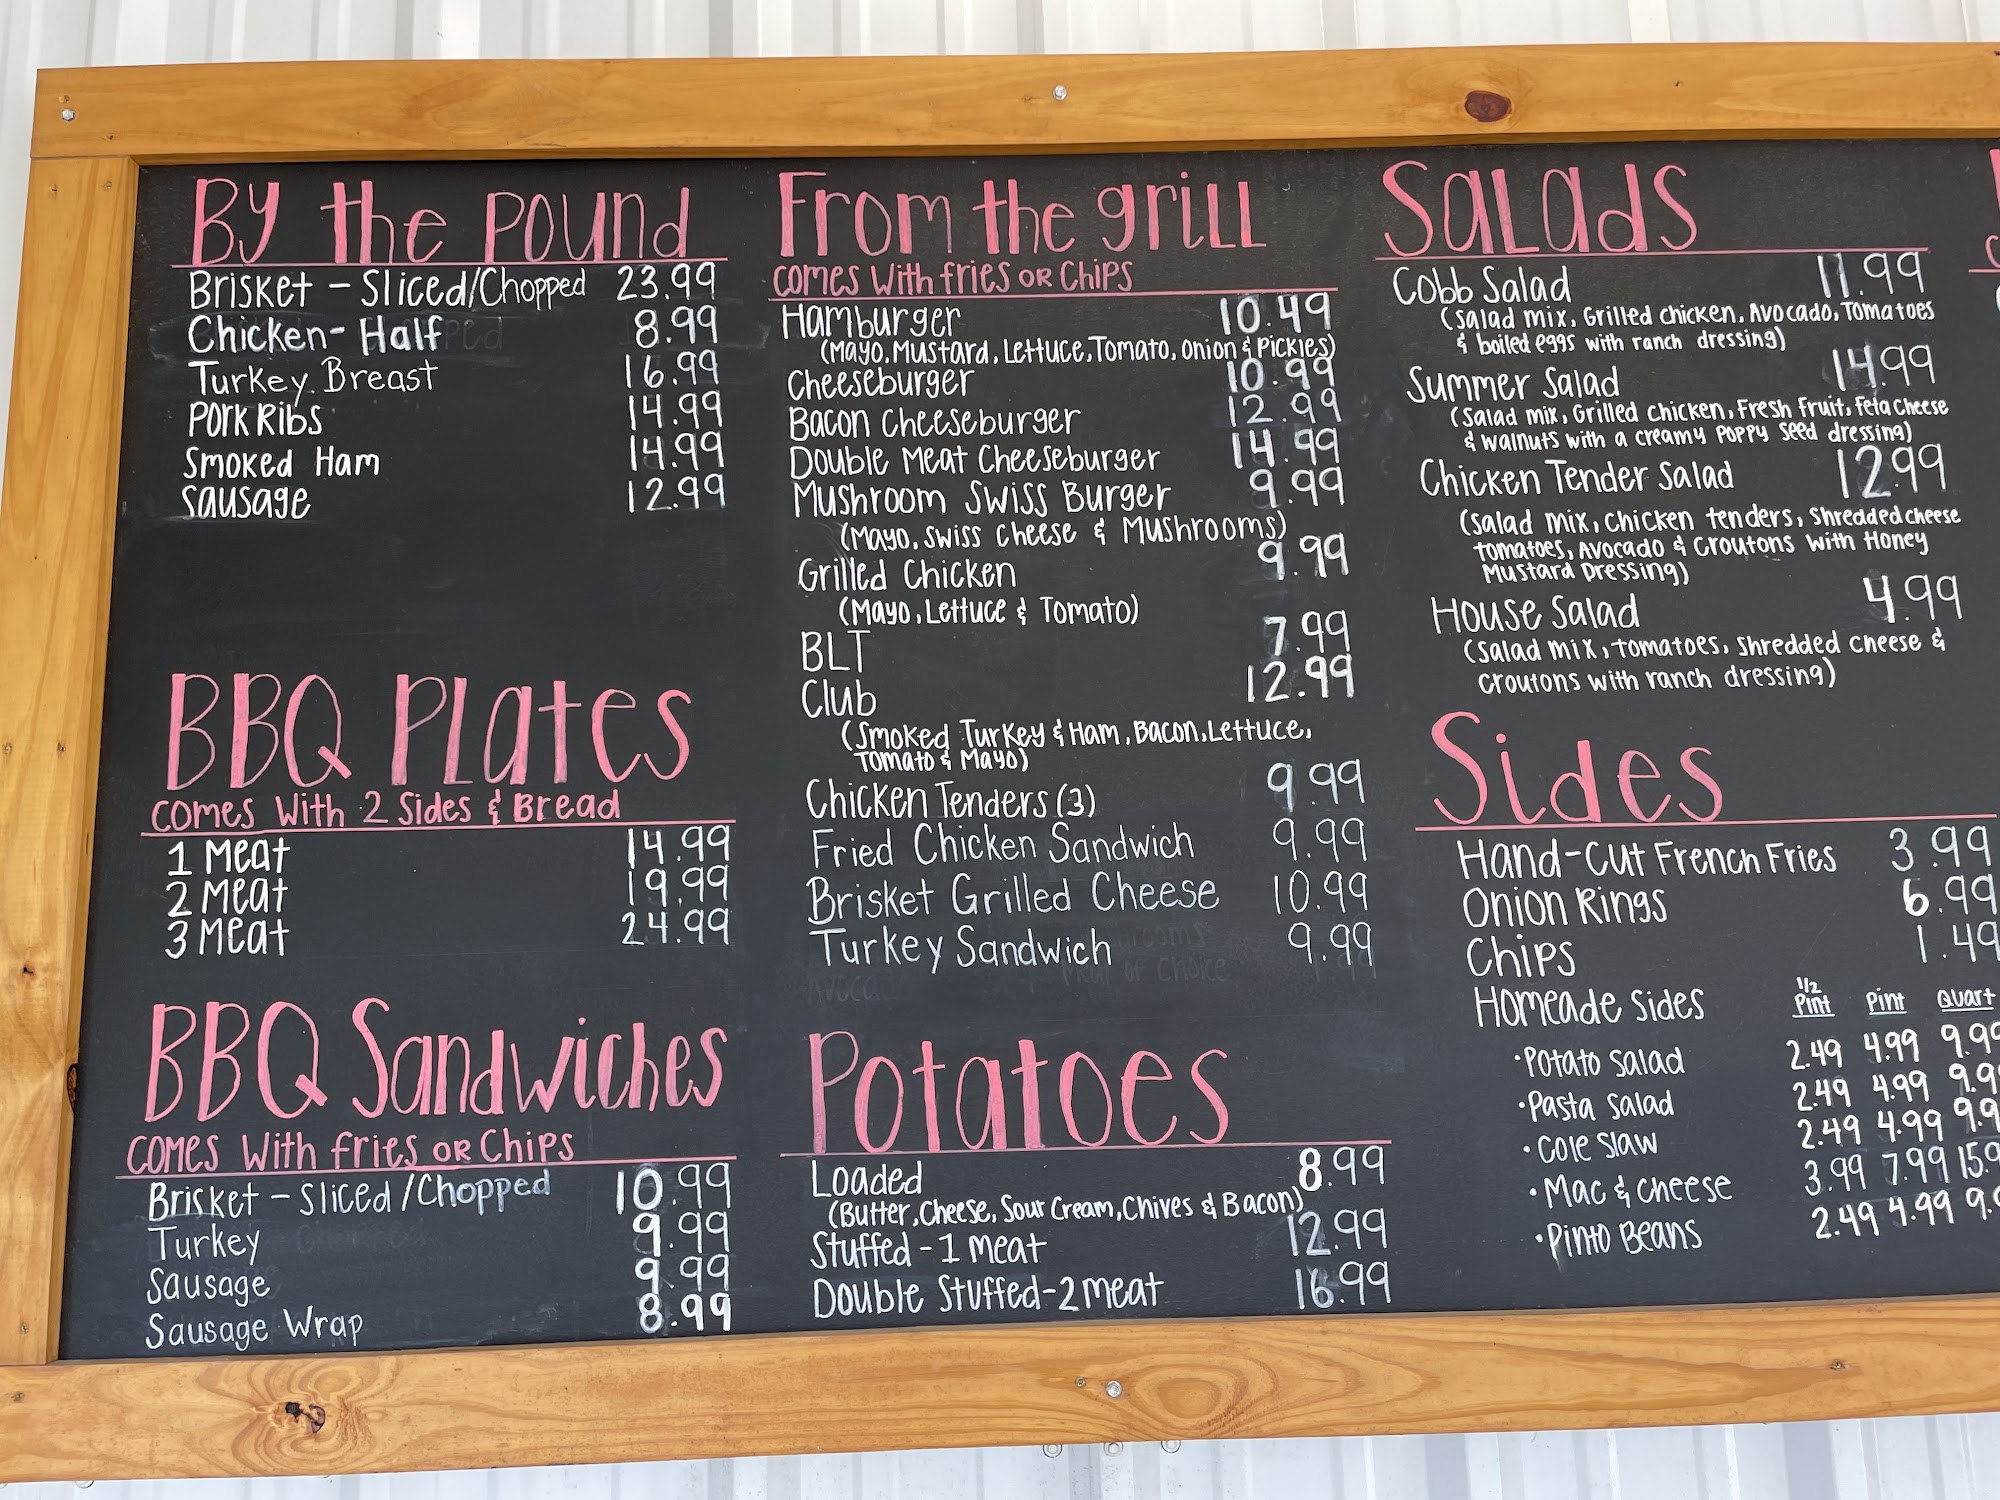 By the Pound
Brisket - Sliced/Chopped 23.99
Chicken- Half 8.99
Turkey Breast 16.99
Pork Ribs 14.99
Smoked Ham 14.99
Sausage 12.99
BBQ Plates
Comes with 2 Sides & Bread
1 Meat 14.99
2 Meat 19.99
3 Meat 24.99
BBQ Sandwiches
Comes with fries or Chips
Brisket - Sliced/Chopped 10.99
Turkey 9.99
Sausage 9.99
Sausage Wrap 8.99
From the grill
Comes with fries or Chips
Hamburger 10.49
(Mayo, Mustard, Lettuce, Tomato, Onion & Pickles)
Cheeseburger 10.99
Bacon Cheeseburger 12.99
Double Meat Cheeseburger 14.99
Mushroom Swiss Burger 9.99
(Mayo, Swiss Cheese & Mushrooms)
Grilled Chicken 9.99
(Mayo, Lettuce & Tomato)
BLT 7.99
Club 12.99
(Smoked Turkey & Ham, Bacon, Lettuce,
Tomato & Mayo)
Chicken Tenders (3) 9.99
Fried Chicken Sandwich 9.99
Brisket Grilled Cheese 10.99
Turkey Sandwich 9.99
Potatoes
Loaded 8.99
(Butter, Cheese, Sour Cream, Chives & Bacon)
Stuffed - 1 meat 12.99
Double Stuffed - 2 meat 16.99
Salads
Cobb Salad 11.99
(Salad mix, Grilled chicken, Avocado, Tomatoes
& boiled eggs with ranch dressing)
Summer Salad 14.99
(Salad mix, Grilled chicken, Fresh Fruit, Feta Cheese
& walnuts with a creamy Poppy Seed dressing)
Chicken Tender Salad 12.99
(Salad mix, chicken tenders, Shredded cheese
tomatoes, Avocado & Croutons with Honey
Mustard Dressing)
House Salad 4.99
(Salad mix, tomatoes, shredded cheese &
croutons with ranch dressing)
Sides
Hand-Cut French Fries 3.99
Onion Rings 6.99
Chips 1.49
Homeade Sides 1/2 Pint Pint Quart
·Potato Salad 2.49 4.99 9.99
·Pasta Salad 2.49 4.99 9.9
·Cole Slaw 2.49 4.99 9.9
·Mac & Cheese 3.99 7.99 15.9
·Pinto Beans 2.49 4.99 9.